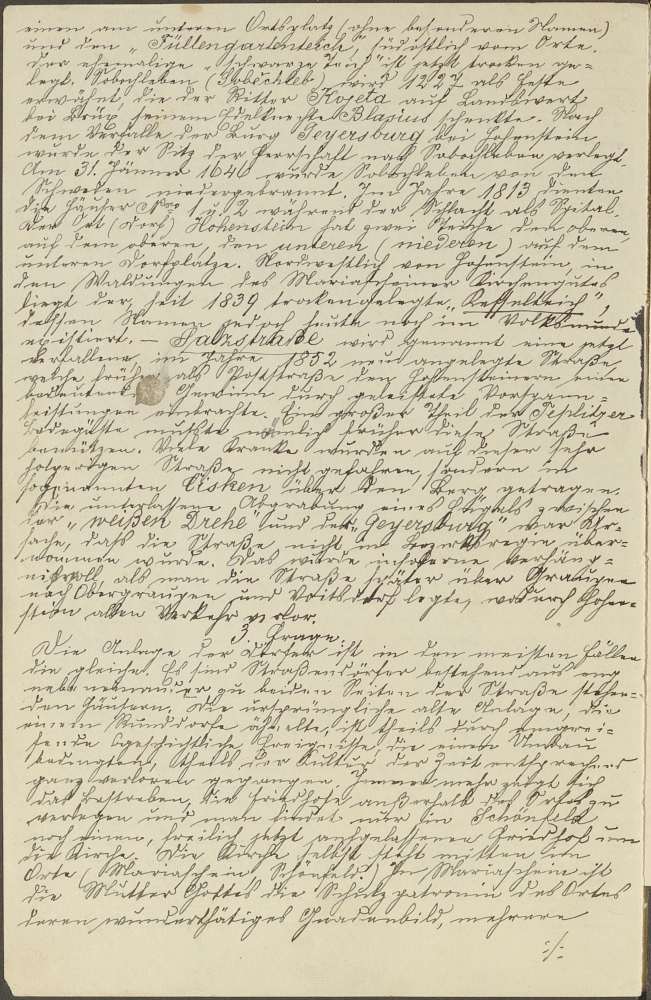 einen am unteren Ortsplatz (ohne besonderen Namen)
und den „Füllengartenteich", südöstlich vom Orte.
Der ehemalige „Schwarze Teich" ist jetzt trocken ge=
legt. Sobochleben (Soběchleb) wird 1227 als Feste
erwähnt, die der Ritter Kojeta auf Landswert
bei Brüx seinem Edelknechte Blasius schenkte. Nach
dem Verfalle der Burg Geyersburg bei Hohenstein
wurde der Sitz der Herrschaft nach Sobochleben verlegt.
Am 31. Jänner 1640 wurde Sobochleben von den
Schweden niedergebrannt. Im Jahre 1813 dienten
die Häuser Nro 1 u. 2 während der Schlacht als Spital.
Der Ort (Dorf) Hohenstein hat zwei Teiche den oberen,
auf dem oberen, den unteren (niederen) auf dem
unteren Dorfplatze. Nordwestlich von Hohenstein, in
den Waldungen des Mariascheiner Kirchengutes
liegt der, seit 1839 trockengelegte, „Kesselteich",
dessen Namen jedoch heute noch im Volksmunde
existiert. – Salzstraße wird genannt eine jetzt
verfallene, im Jahre 1852 neu angelegte Straße,
welche früher als Poststraße den Hohensteinern einen
bedeutenden Gewinn durch geleistete Vorspann=
leistungen einbrachte. Ein großer Theil der Teplitzer
Badegäste mußte nämlich früher diese Straße
benützen. Viele Kranke wurden auf dieser sehr
holperigen Straße nicht gefahren, sondern in
sogenannten Tisken über den Berg getragen.
Die unterlassene Abgrabung eines Hügels zwischen
der „weißen Drehe" und der „Geyersburg" war Ur=
sache, daß die Straße nicht in Bezirksregie über=
nommen wurde. Das wurde insoferne verhäng=
nißvoll, als man die Straße später über Graupen
nach Obergraupen und Voitsdorf legte, wodurch Hohen=
stein allen Verkehr verlor.
3. Frage.
Die Anlage der Dörfer ist in den meisten Fällen
die gleiche. Es sind Straßendörfer bestehend aus eng
nebeneinander zu beiden Seiten der Straße stehen=
den Häusern. Die ursprüngliche alte Anlage, die
einem Runddorfe ähnelte, ist theils durch eingrei=
fende geschichtliche Ereignisse, die einen Umbau
bedingten, theils der Kultur der Zeit entsprechend
ganz verloren gegangen. Immer mehr zeigt sich
das Bestreben, die Friedhöfe außerhalb des Ortes zu
verlegen und man findet nur in Schönfeld
noch einen, freilich jetzt aufgelassenen Friedhof um
die Kirche. Die Kirche selbst steht mitten im
Orte (Mariaschein, Schönfeld). In Mariaschein ist
die Mutter Gottes die Schutzpatronin des Ortes
deren wunderthätiges Gnadenbild, mehrere
./.